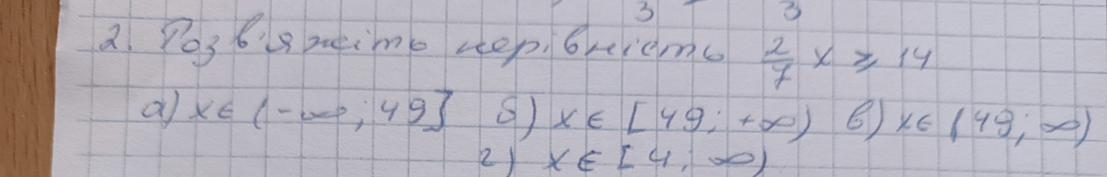 3 3
2. Розв'яжіть нерівність 2/7 x ⩾ 14
а) x ∈ (-∞; 49] б) x ∈ [49; +∞) в) x ∈ (49; ∞)
г) x ∈ [4; ∞)